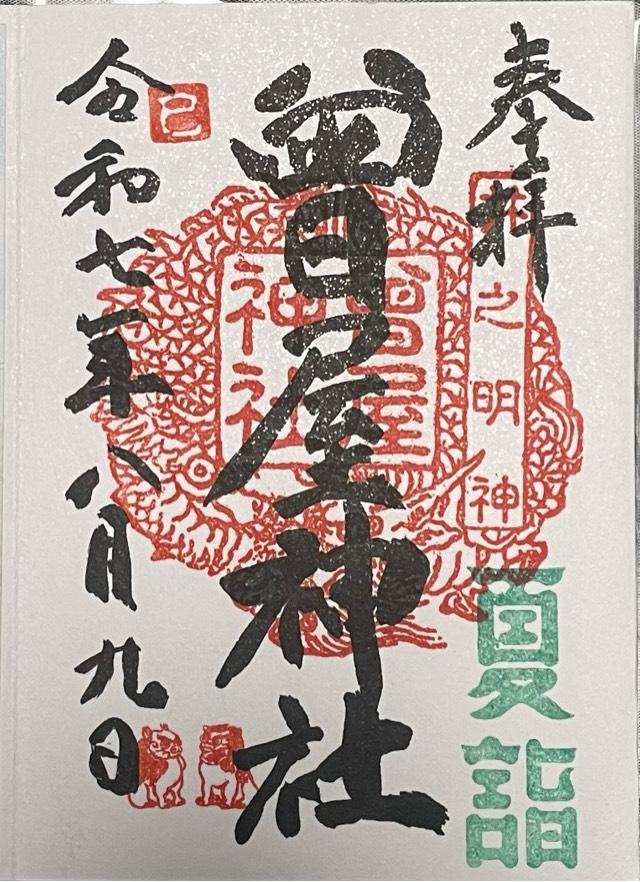 奉拝
之明神
夏詣
曾屋神社
曾屋
神社
令和七年八月九日
巳